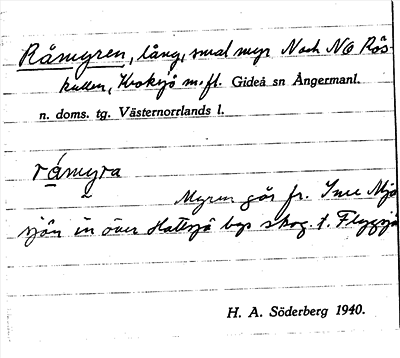 Råmyren, lång, smal myr N och NO Rås-
kullen, Kroksjö m.fl. Gideå sn Ångermanl.
n. doms. tg. Västernorrlands l.
råmyra
Myren går fr. Inre Mjö
sjön in över Hattsjö bys skog. t. Flyggsjö
H. A. Söderberg 1940.